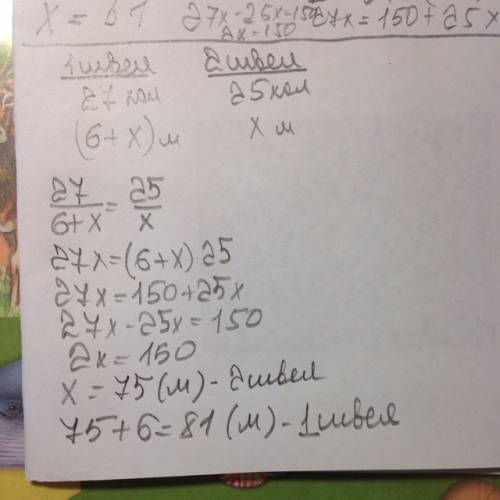 27x-25x=150 27x=150+25x
2x=150
1швея 2швея
27хал 25хал
(6+x)м xм
27/6+x=25/x
27x=(6+x)·25
27x=150+25x
27x-25x=150
2x=150
x=75(м)-2швея
75+6=81(м)-1швея